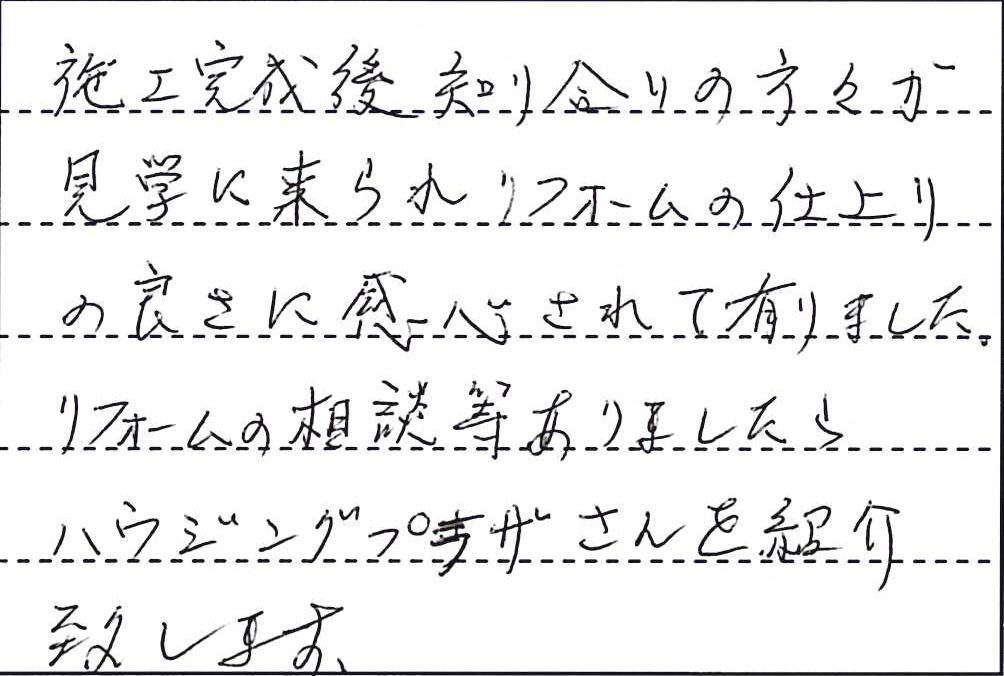 施工完成後知り合りの方々が
見学に来られリフォームの仕上り
の良さに感心されて有りました。
リフォームの相談等ありましたら
ハウジングプラザさんを紹介
致します。